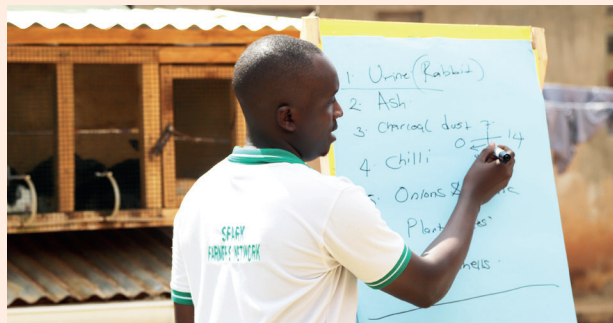 1. Urine (Rabbit)
2. Ash
3. Charcoal dust 7
0 14
4. Chilli
Onions &
Plant
FARMERS NETWORK